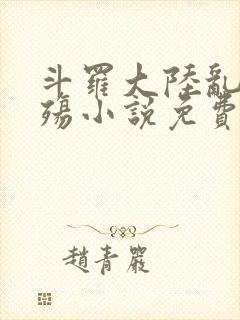 斗羅大陸亂
殤小說免費
趙青嚴